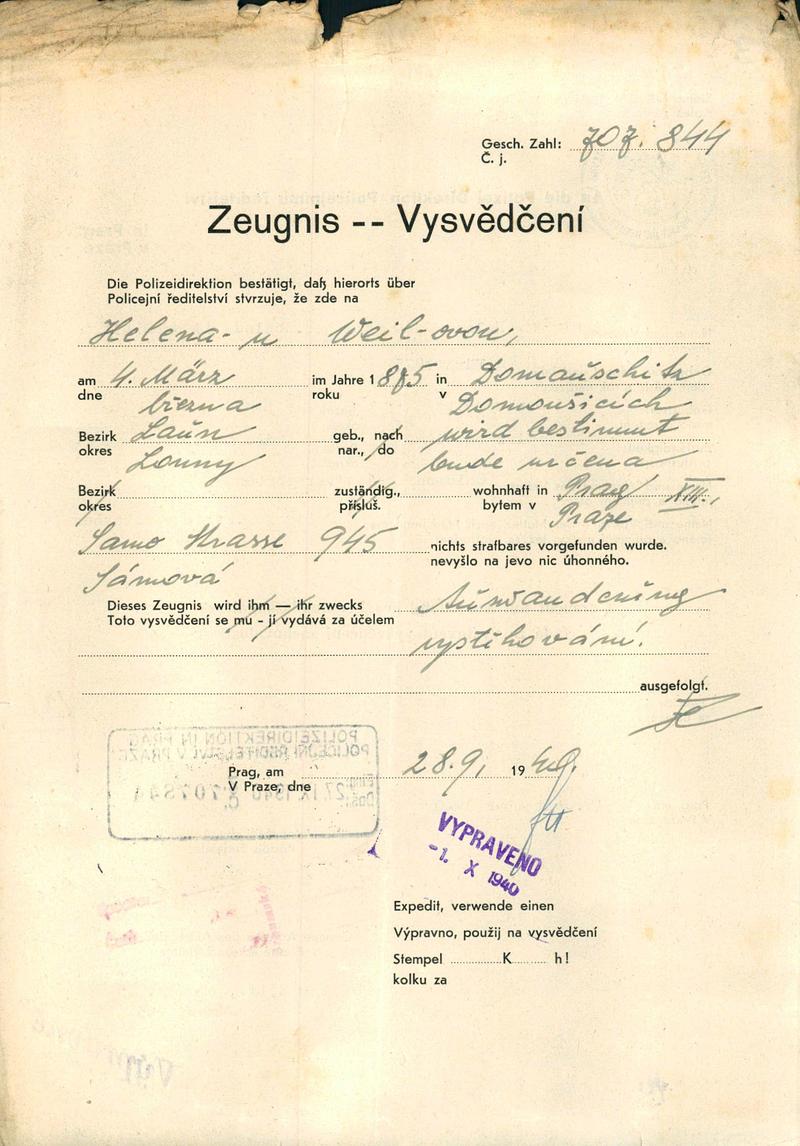 Gesch. Zahl: 707. 844
Č. j.
Zeugnis -- Vysvědčení
Die Polizeidirektion bestätigt, daß hierorts über
Policejní ředitelství stvrzuje, že zde na
Helena- u Weil-ovou,
am 4. März im Jahre 1885 in Domauschitz
dne března roku v Domoušicích
Bezirk Laun geb., nach wird bestimmt
okres Louny nar., do bude určena
Bezirk zuständig., wohnhaft in Prag XIII.,
okres přísluš. bytem v Praze
Samo Strasse 945 nichts strafbares vorgefunden wurde.
Sámová nevyšlo na jevo nic úhonného.
Dieses Zeugnis wird ihm — ihr zwecks Auswanderung
Toto vysvědčení se mu - jí vydává za účelem
vystěhování.
ausgefolgt.
POLIZEIDIREKTION IN PRAG
POLICEJNÍ ŘEDITELSTVÍ V PRAZE
Prag, am 28.9. 1940.
V Praze, dne
27. IX. 1940
VYPRAVENO
-1. X 1940
Expedit, verwende einen
Výpravno, použij na vysvědčení
Stempel ............K........ h!
kolku za